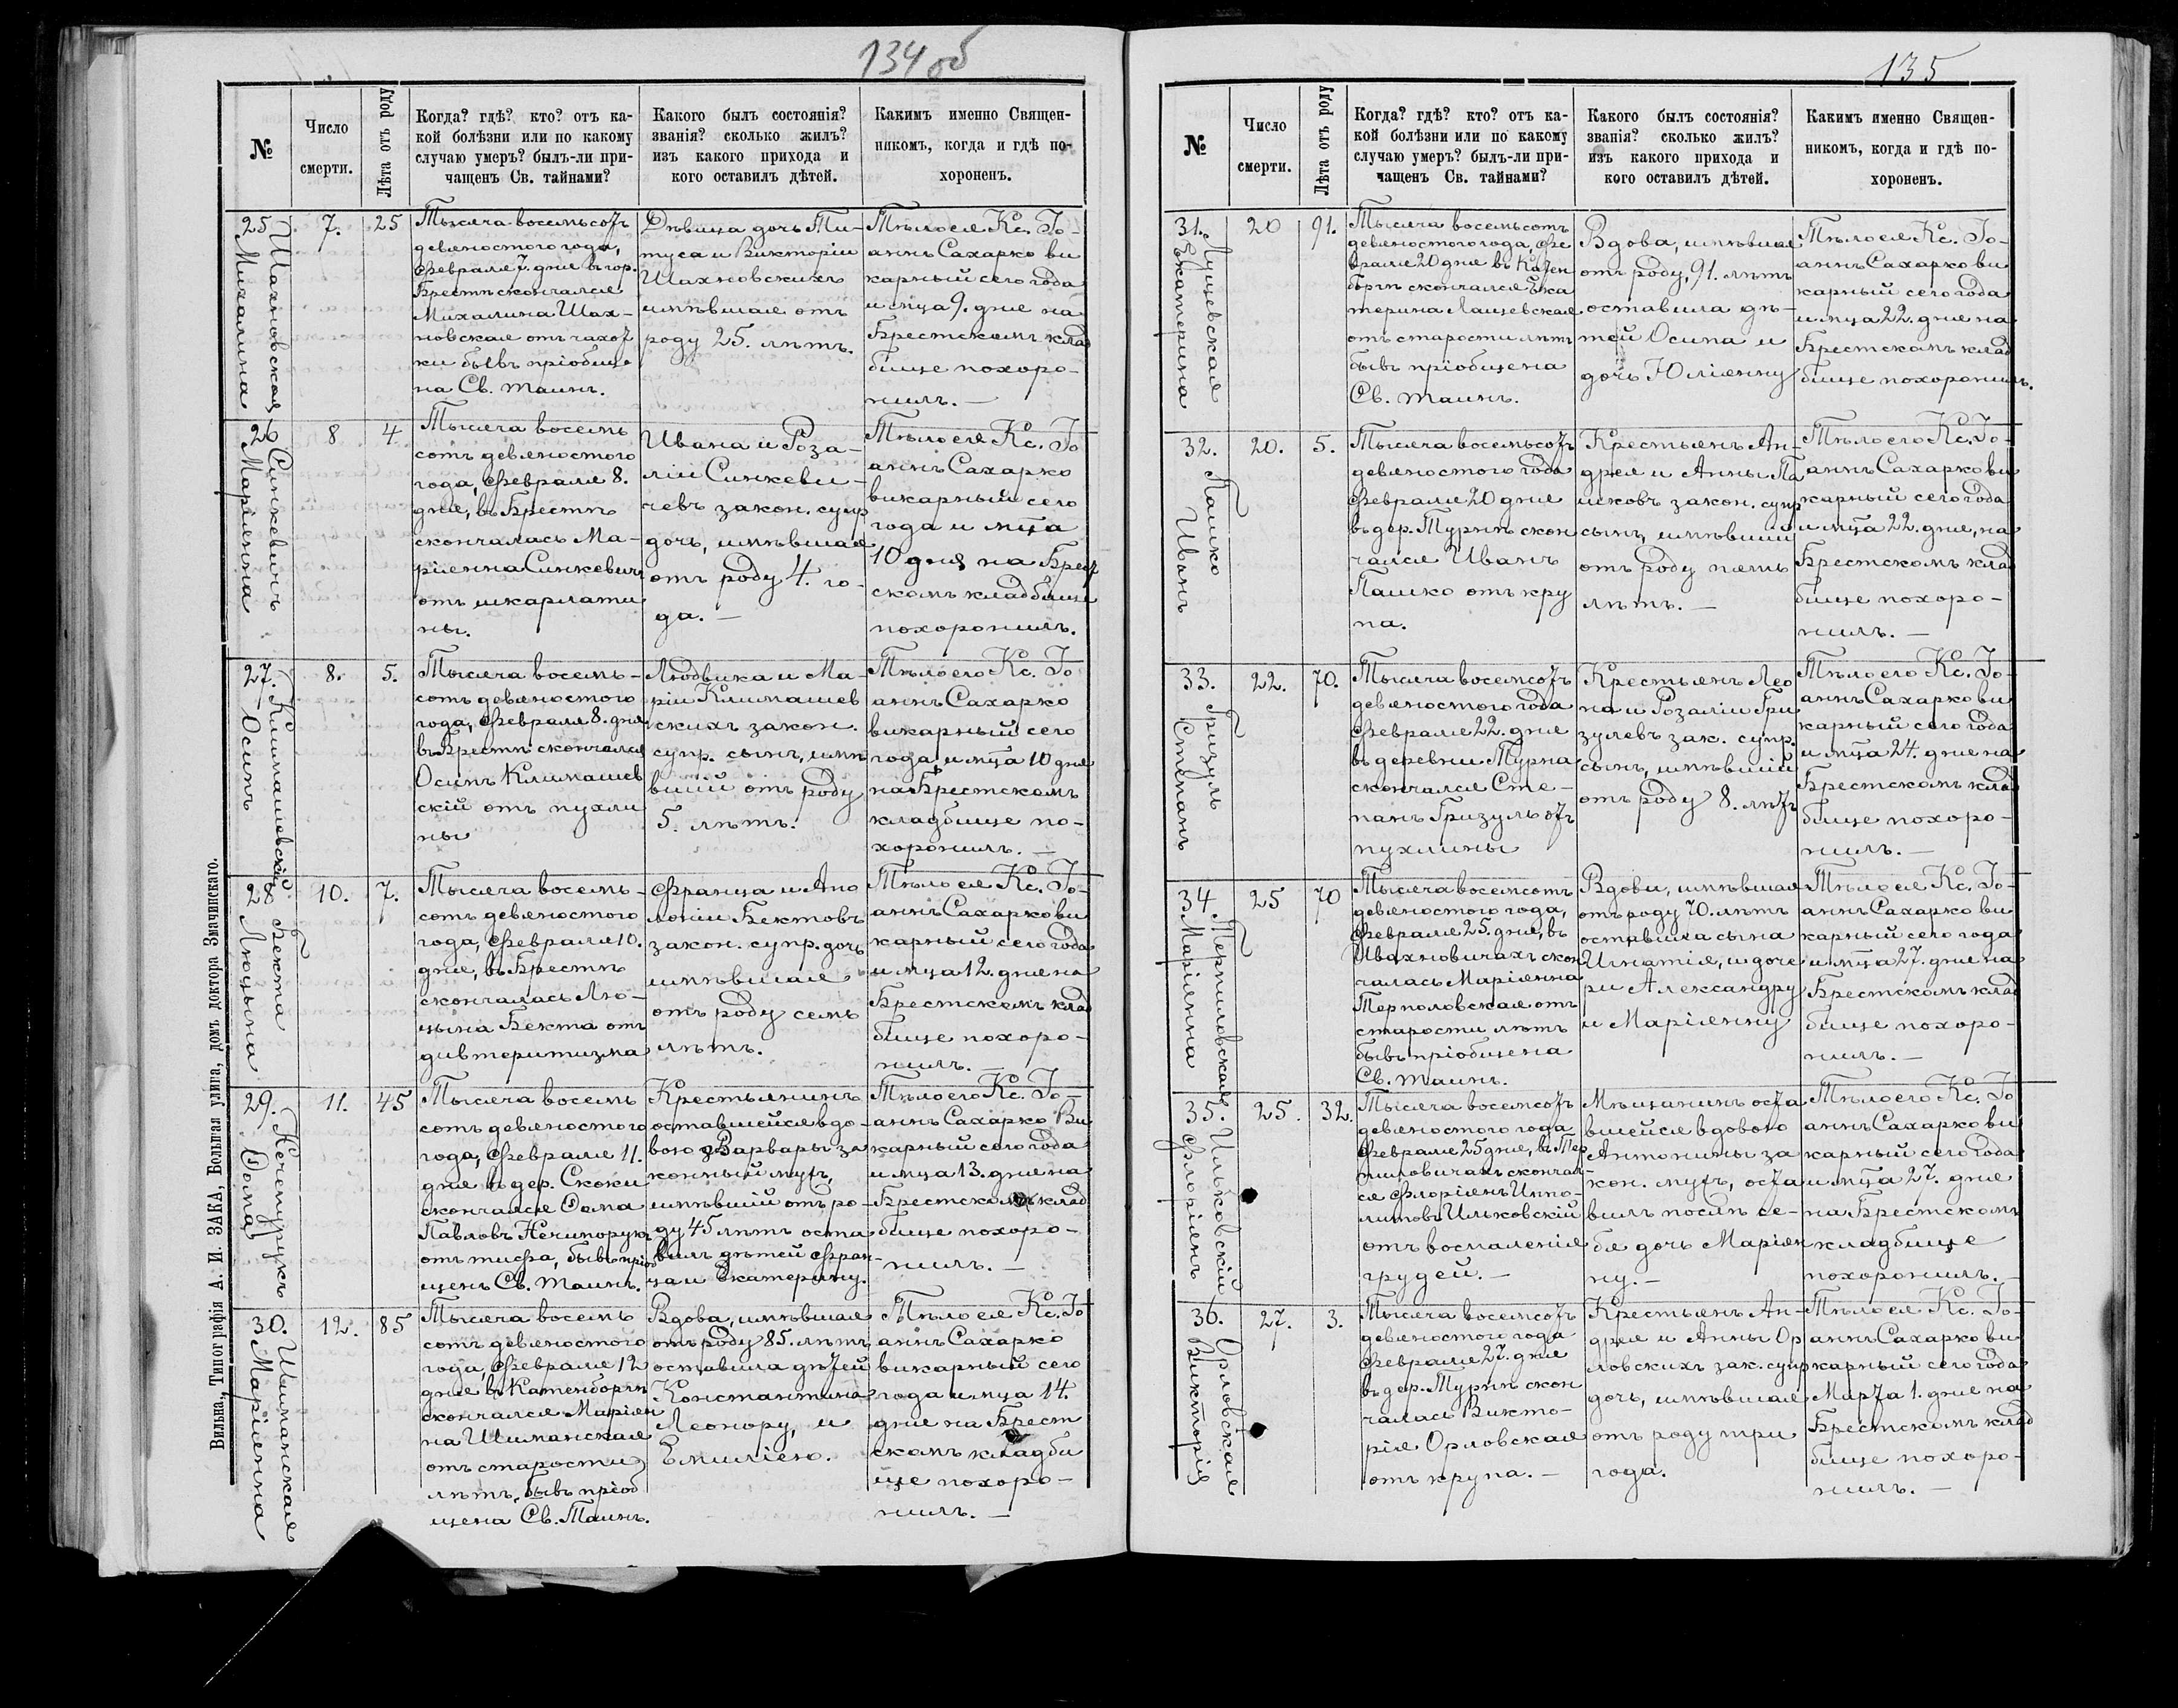 134 об
№
Число
смерти.
Лѣта отъ роду
Когда? гдѣ? кто? отъ ка-
кой болѣзни или по какому
случаю умеръ? былъ-ли при-
чащенъ Св. тайнами?
Какого былъ состоянія?
званія? сколько жилъ?
изъ какого прихода и
кого оставилъ дѣтей.
Какимъ именно Священ-
никомъ, когда и гдѣ по-
хороненъ.
25
Шахновская
Михалина
7.
25
Тысяча восемьсотъ
девяностого года,
февраля 7. дня въ гор.
Брестѣ скончался
Михалина Шах-
новская отъ чахот
ки бывъ пріобще
на Св. таинъ.
Дѣвица дочь Ти-
туса и Викторіи
Шахновскихъ
имѣвшая отъ
роду 25. лѣтъ.
Тѣло ея Кс. Іо-
аннъ Сахарко ви
карный сего года
и мца 9. дня на
Брестскомъ клад
бище похоро-
нилъ. —
26
Синкевичъ
Маріянна
8
4
Тысяча восемь
сотъ девяностого
года, февраля 8.
дня, въ Брестѣ
скончалась Ма-
ріянна Синкевичъ
отъ шкарлати
ны.
Ивана и Роза-
ліи Синкеви-
чевъ закон. супр
дочь, имѣвшая
отъ роду 4. го-
да. —
Тѣло ея Кс. Іо
аннъ Сахарко
викарный сего
года и мца
10 дня на Брест
скомъ кладбище
похоронилъ.
27.
Климашевскій
Осипъ
8.
5.
Тысяча восемь-
сотъ девяностого
года, февраля 8. дня
въ Брестѣ скончался
Осипъ Климашев
скій отъ пухли
ны
Людвика и Ма-
ріи Климашев
скихъ закон.
супр. сынъ, имѣ
вшій отъ роду
5. лѣтъ.
Тѣло его Кс. Іо-
аннъ Сахарко
викарный сего
года и мца 10 дня
на Брестскомъ
кладбище по-
хоронилъ. —
28
Бекта
Люцына
10.
7.
Тысяча восемь-
сотъ девяностого
года, февраля 10.
дня, въ Брестѣ
скончалась Лю-
цына Бекта отъ
дивтеритизма
Франца и Апо
лоніи Бектовъ
закон. супр. дочь
имѣвшая
отъ роду семь
лѣтъ.
Тѣло ея Кс. Іо-
аннъ Сахарко ви
карный сего года
и мца 12. дня на
Брестскомъ клад
бище похоро-
нилъ. —
29.
Нечипурукъ
Ѳома
11.
45
Тысяча восемь
сотъ девяностого
года, февраля 11.
дня въ дер. Скоки
скончался Ѳома
Павловъ Нечипорукъ
отъ тифа, бывъ пріоб
щенъ Св. Таинъ.
Крестьянинъ
оставшейся вдо-
вою Варвары за
конный мужъ,
имѣвшій отъ ро-
ду 45 лѣтъ оста
вилъ дѣтей Фран-
ца и Екатерину.
Тѣло его Кс. Іо-
аннъ Сахарко Ви
карный сего года
и мца 13. дня на
Брестскомъ клад
бище похоро-
нилъ. —
30.
Шиманская
Маріянна
12.
85
Тысяча восемь
сотъ девяностого
года, февраля 12
дня въ Катенборгѣ
скончался Маріян
на Шиманская
отъ старости
лѣтъ, бывъ пріоб
щена Св. Таинъ.
Вдова, имѣвшая
отъ роду 85. лѣтъ
оставила дѣтей
Константина
Леонору, и
Емилію.
Тѣло ея Кс. Іо
аннъ Сахарко
викарный сего
года и мца 14.
дня на Брест
скомъ кладби
ще похоро-
нилъ. —
Вильна, Типографія А. И. ЗАКА, Большая улица, домъ доктора Змачинскаго.
135
№
Число
смерти.
Лѣта отъ роду
Когда? гдѣ? кто? отъ ка-
кой болѣзни или по какому
случаю умеръ? былъ-ли при-
чащенъ Св. тайнами?
Какого былъ состоянія?
званія? сколько жилъ?
изъ какого прихода и
кого оставилъ дѣтей.
Какимъ именно Священ-
никомъ, когда и гдѣ по-
хороненъ.
31.
Лущевская
Екатерина
20
91.
Тысяча восемьсотъ
девяностого года, фе
враля 20 дня въ Катен
бѣргѣ скончался Ека
терина Лащевская
отъ старости лѣтъ
бывъ пріобщена
Св. таинъ.
Вдова, имѣвшая
отъ роду, 91. лѣтъ
оставила дѣ-
тей Осипа и
дочь Юліянну
Тѣло ея Кс. Іо-
аннъ Сахарко ви
карный сего года
и мца 22. дня на
Брестскомъ клад
бище похоронилъ.
32.
Пашко
Иванъ
20.
5.
Тысяча восемьсотъ
девяностого года
февраля 20 дня
въ дер. Турнѣ скон
чался Иванъ
Пашко отъ кру
па.
Крестьянъ Ан-
дрея и Анны Па
шковъ закон. супр
сынъ, имѣвшій
отъ роду пять
лѣтъ. —
Тѣло его Кс. Іо-
аннъ Сахарко ви
карный сего года
и мца 22. дня, на
Брестскомъ клад
бище похоро-
нилъ. —
33.
Гризуль
Степанъ
22.
70.
Тысяча восемсотъ
девяностого года
февраля 22. дня
въ деревни Турна
скончался Сте-
панъ Гризуль отъ
пухлины
Крестьянъ Лео
на и Розаліи Гри
зулевъ зак. супр.
сынъ, имѣвшій
отъ роду 8. лѣтъ
Тѣло его Кс. Іо-
аннъ Сахарко ви
карный сего года
и мца 24. дня на
Брестскомъ клад
бище похоро-
нилъ. —
34.
Терпиловская
Маріянна
25
70
Тысяча восемсотъ
девяностого года,
февраля 25. дня, въ
Ивахновичахъ скон
чалась Маріянна
Терполовская отъ
старости лѣтъ
бывъ пріобщена
Св. таинъ.
Вдови, имѣвшая
отъ роду 70. лѣтъ
оставила сына
Игнатія, и доче
ри Александру
и Маріянну
Тѣло ея Кс. Іо-
аннъ Сахарко ви
карный сего года
и мца 27. дня на
Брестскомъ клад
бище похоро-
нилъ. —
35.
Ильковскій
Флоріянъ
25.
32.
Тысяча восемсотъ
девяностого года
февраля 25 дня, въ Тер
пиловичахъ скончал-
ся Флоріянъ Иппо-
литовъ Ильковскій
отъ воспаленія
грудей. —
Мѣщанинъ оста
вшейся вдовою
Антонины за
кон. мужъ, оста
вилъ послѣ се-
бя дочь Маріян
ну. —
Тѣло его Кс. Іо
аннъ Сахарко ви
карный сего года
и мца 27. дня
на Брестскомъ
кладбище
похоронилъ. —
36.
Орловская
Викторія
27.
3.
Тысяча восемсотъ
девяностого года
февраля 27. дня
въ дер. Турнѣ скон
чалась Викто-
рія Орловская
отъ крупа. —
Крестьянъ Ан-
дрея и Анны Ор
ловскихъ зак. супр
дочь, имѣвшая
отъ роду три
года.
Тѣло ея Кс. Іо-
аннъ Сахарко ви
карный сего года
Марта 1. дня на
Брестскомъ клад
бище похоро-
нилъ. —